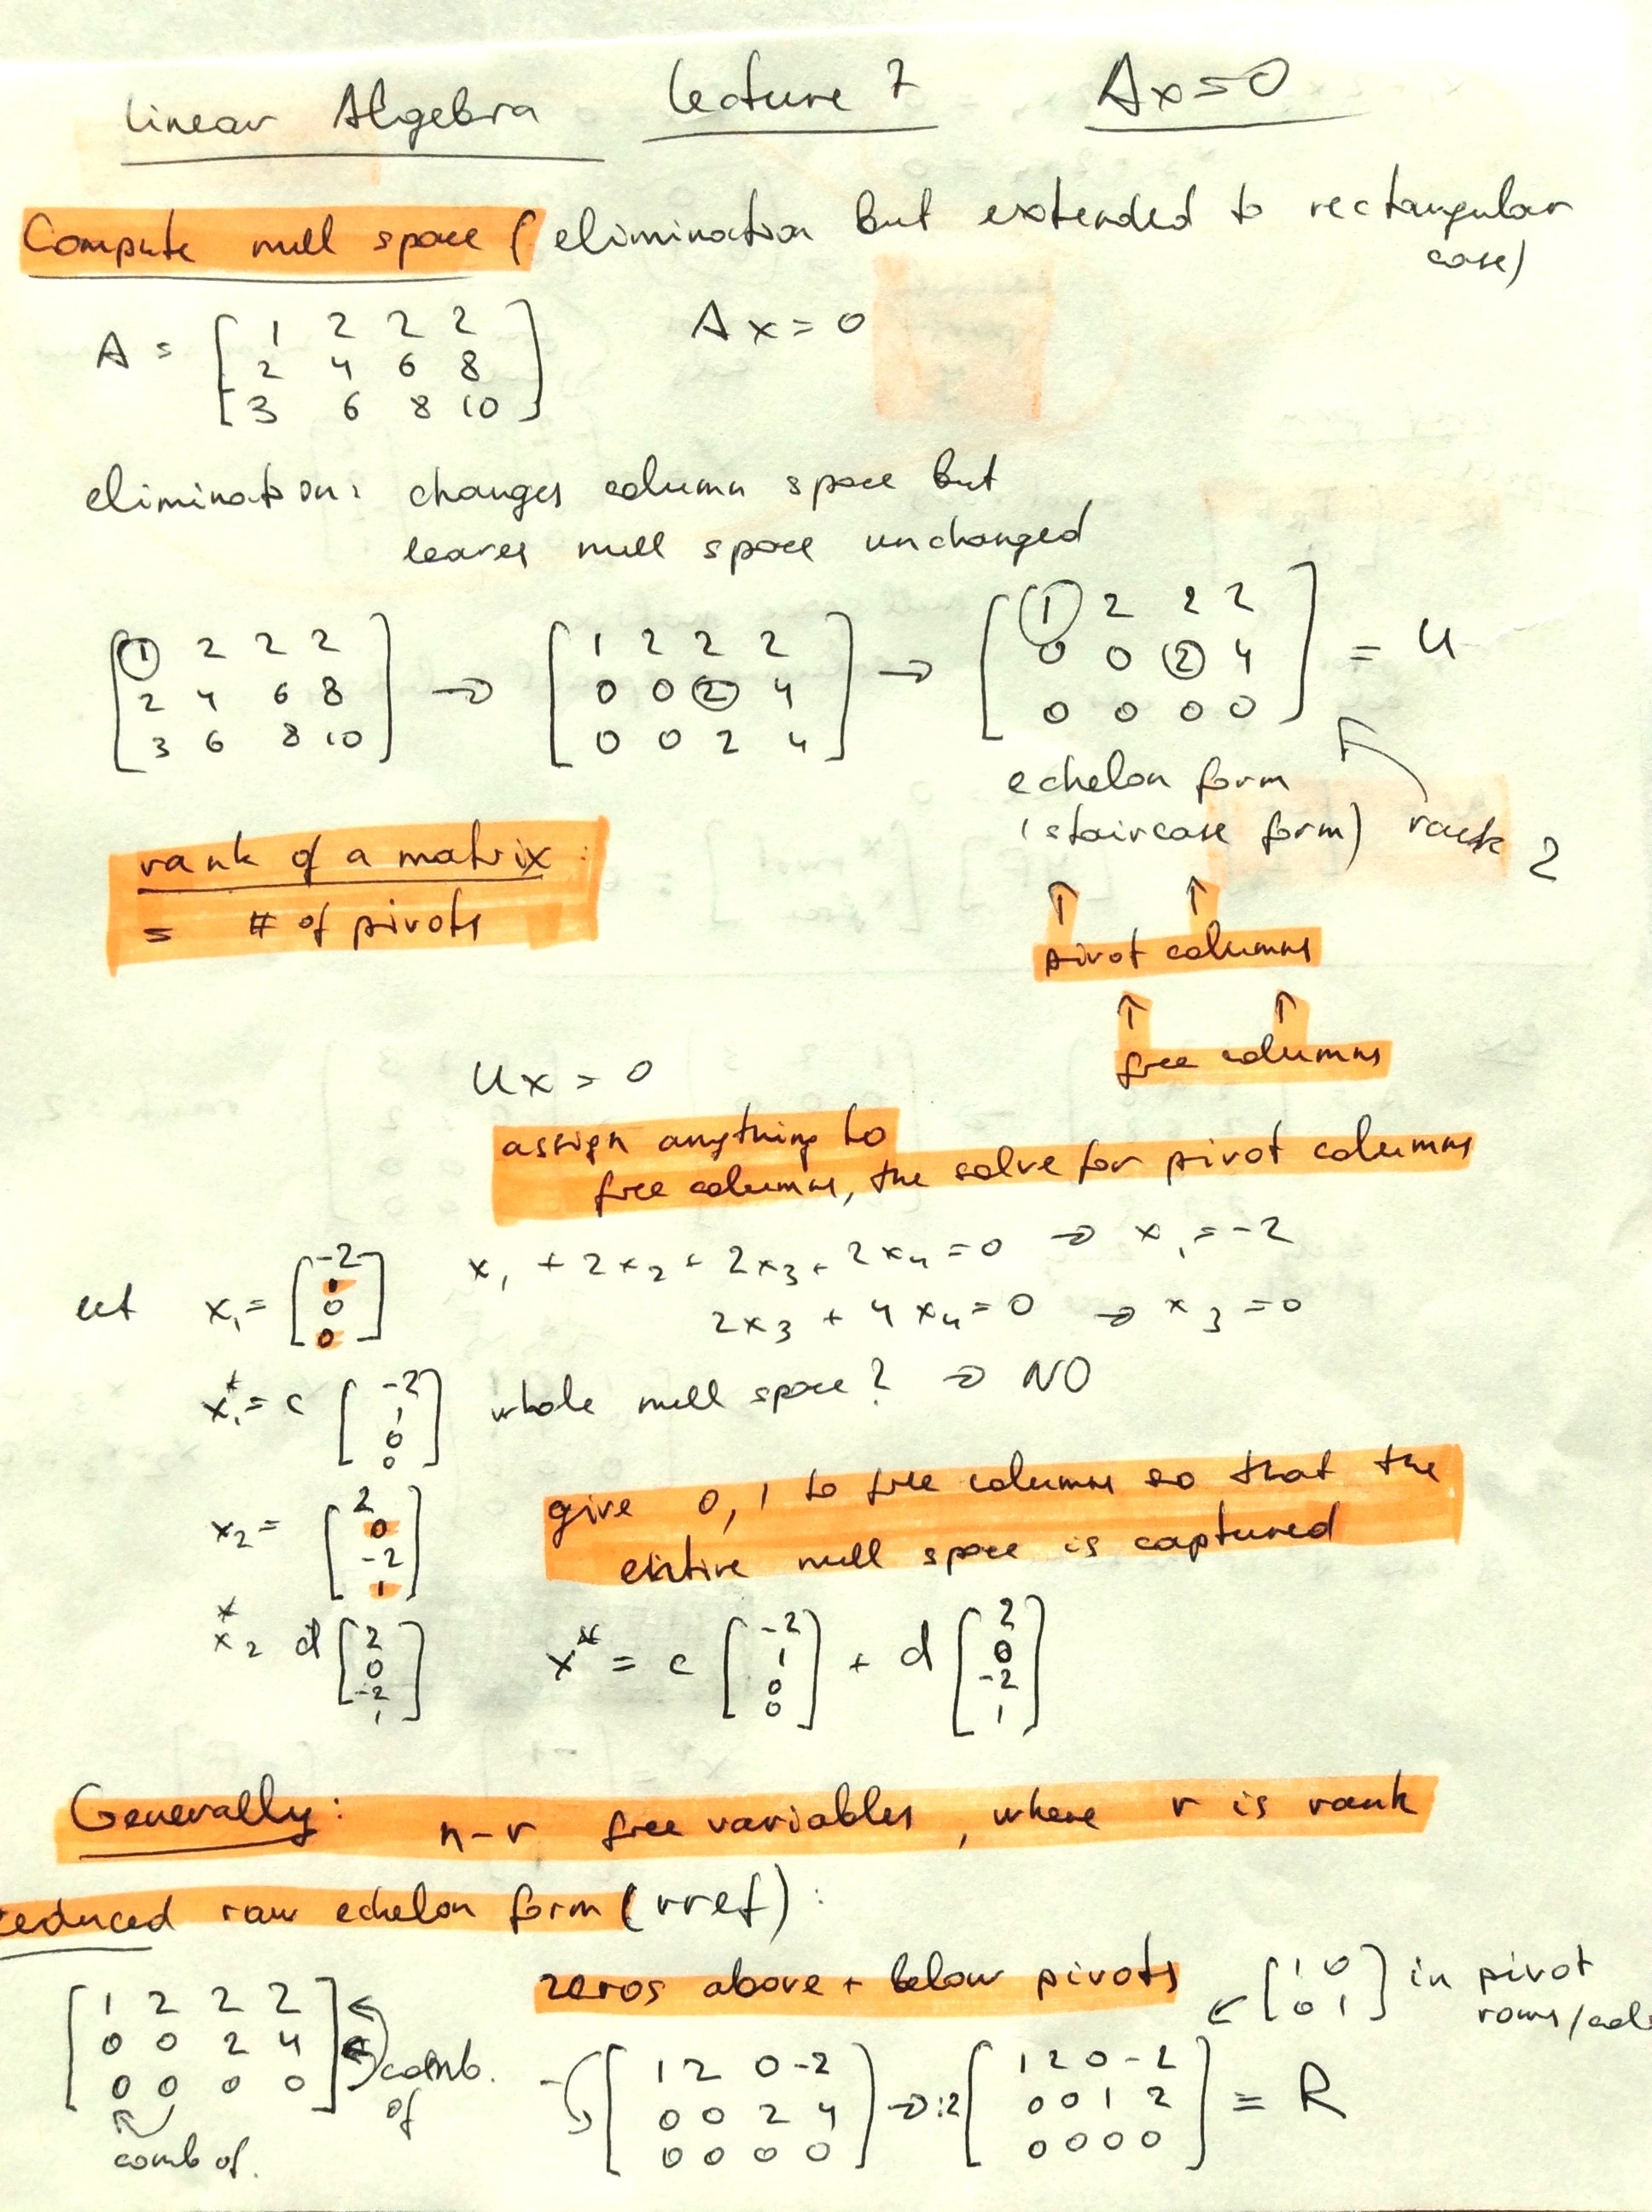 Linear Algebra Lecture 7 Ax=0
Compute null space (elimination but extended to rectangular
case)
A = [ 1 2 2 2
2 4 6 8
3 6 8 10 ]
Ax=0
elimination: changes column space but
leaves null space unchanged
[ 1 2 2 2
2 4 6 8
3 6 8 10 ]
→ [ 1 2 2 2
0 0 2 4
0 0 2 4 ]
→ [ 1 2 2 2
0 0 2 4
0 0 0 0 ] = U
echelon form
(staircase form) rank 2
rank of a matrix:
= # of pivots
↑ ↑
pivot columns
↑ ↑
free columns
Ux = 0
assign anything to
free columns, the solve for pivot columns
x₁ + 2x₂ + 2x₃ + 2x₄ = 0 → x₁ = -2
2x₃ + 4x₄ = 0 → x₃ = 0
let x₁ = [ -2
1
0
0 ]
x₁* = c [ -2
1
0
0 ]
whole null space? → NO
x₂ = [ 2
0
-2
1 ]
give 0, 1 to free columns so that the
entire null space is captured
x₂* d [ 2
0
-2
1 ]
x* = c [ -2
1
0
0 ] + d [ 2
0
-2
1 ]
Generally: n-r free variables, where r is rank
reduced raw echelon form (rref):
zeros above + below pivots
← [ 1 0
0 1 ] in pivot
rows/cols
[ 1 2 2 2
0 0 2 4
0 0 0 0 ]
comb.
of
comb of.
[ 1 2 0 -2
0 0 2 4
0 0 0 0 ]
→ :2 [ 1 2 0 -2
0 0 1 2
0 0 0 0 ] = R